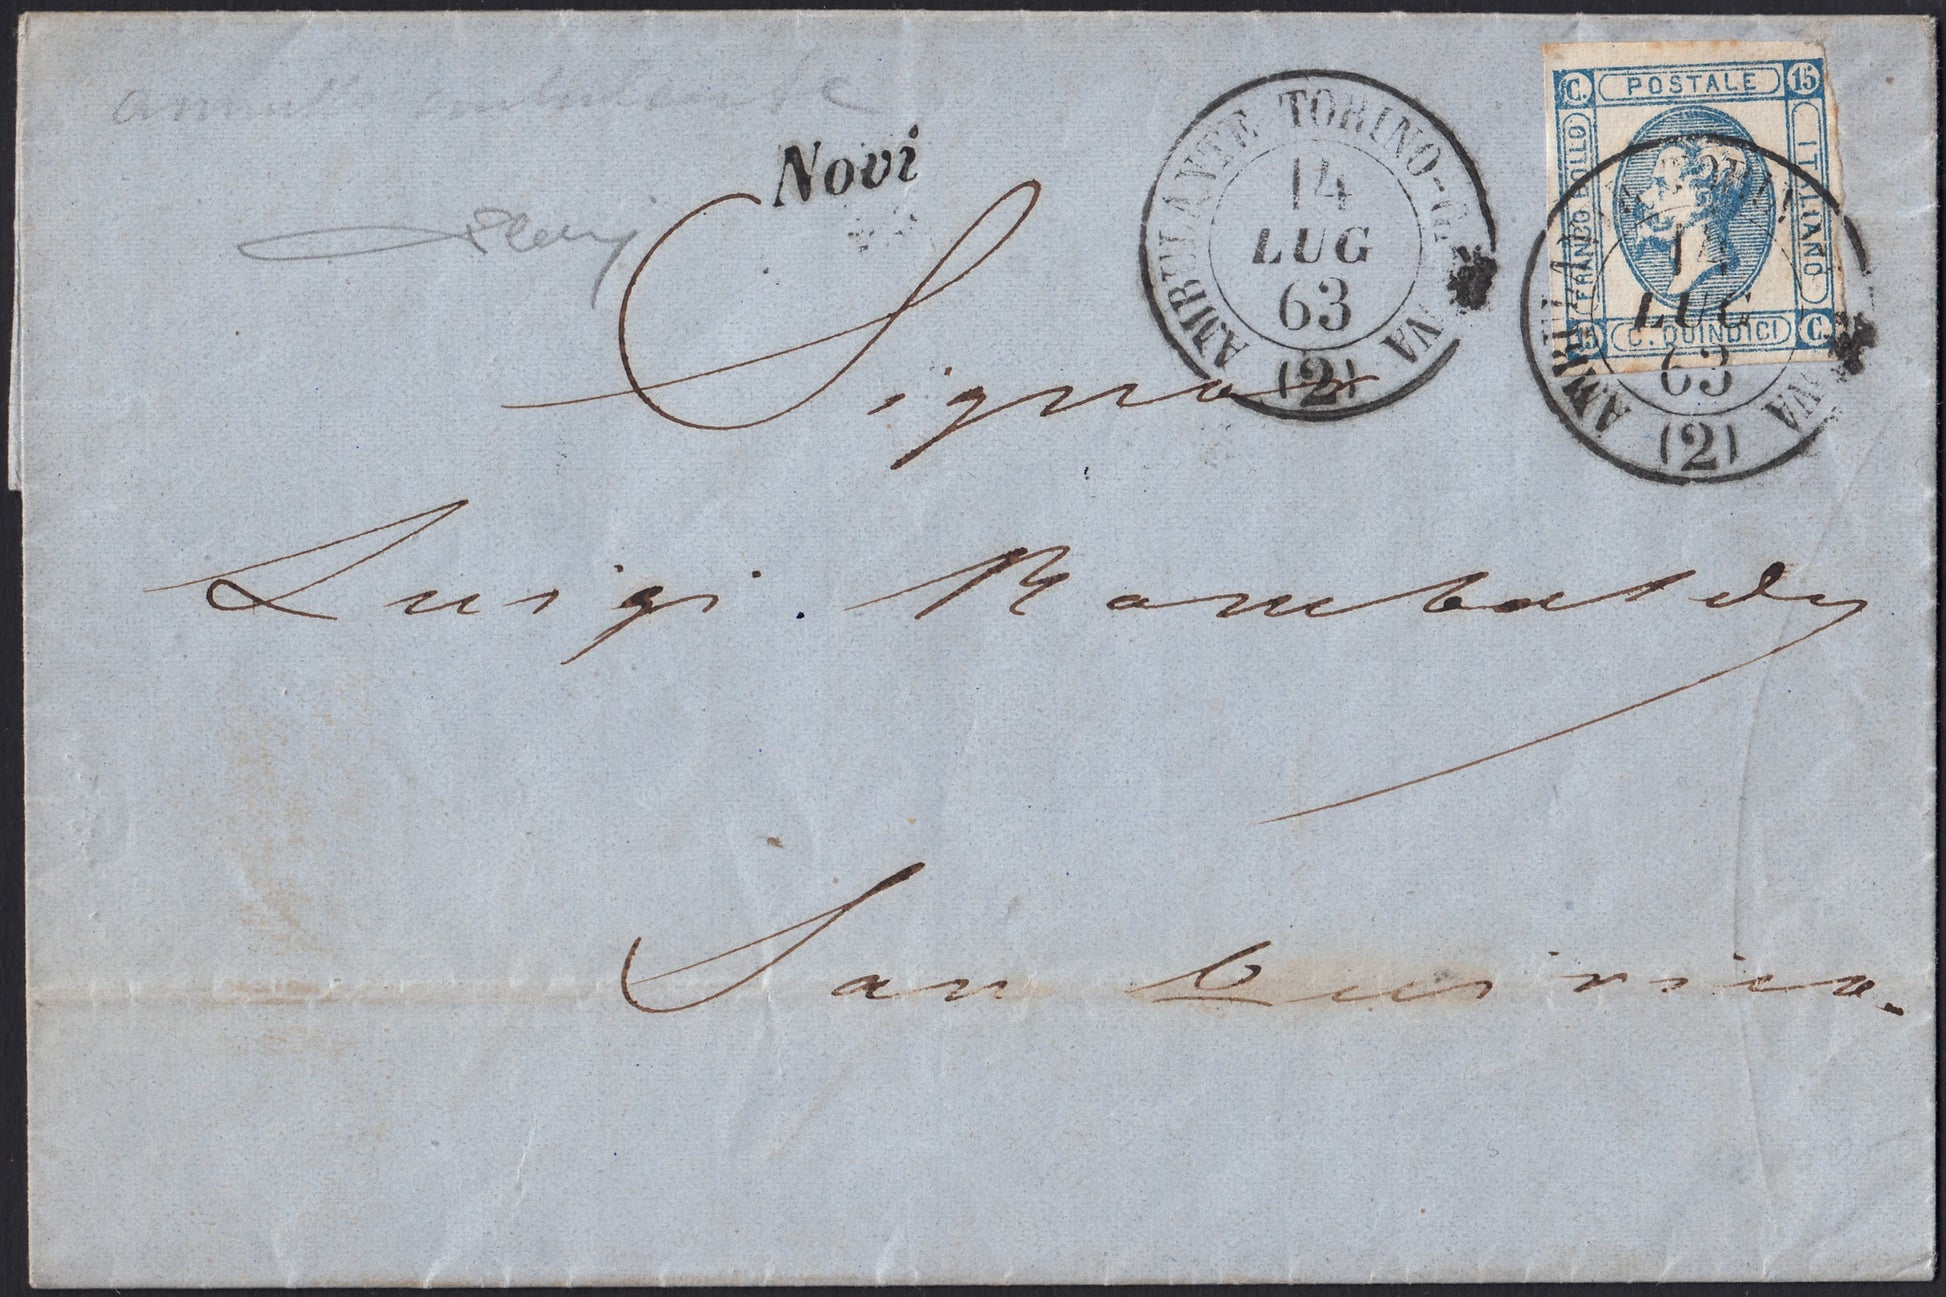 annullo ambulante
Novi
AMBULANTE TORINO-GENOVA
14
LUG
63
(2)
C. POSTALE 15
FRANCO BOLLO
ITALIANO
15 C. QUINDICI C.
14
LUG
63
(2)
Signor
Luigi Rambaldy
San Quirico.